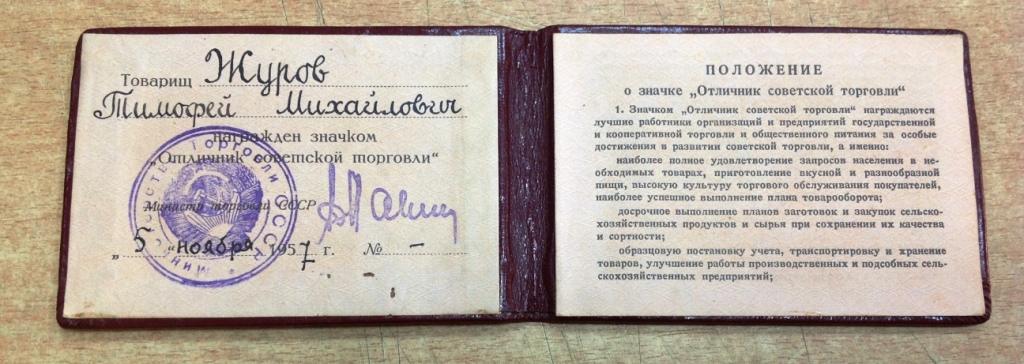 Товарищ Журов
Тимофей Михайлович
награжден значком
"Отличник советской торговли"
Министр торговли СССР
„5" ноября 1957 г. № –
ТОРГОВЛИ СССР
ПОЛОЖЕНИЕ
о значке „Отличник советской торговли"
1. Значком „Отличник советской торговли" награждаются
лучшие работники организаций и предприятий государственной
и кооперативной торговли и общественного питания за особые
достижения в развитии советской торговли, а именно:
наиболее полное удовлетворение запросов населения в не-
обходимых товарах, приготовление вкусной и разнообразной
пищи, высокую культуру торгового обслуживания покупателей,
наиболее успешное выполнение плана товарооборота;
досрочное выполнение планов заготовок и закупок сельско-
хозяйственных продуктов и сырья при сохранении их качества
и сортности;
образцовую постановку учета, транспортировку и хранение
товаров, улучшение работы производственных и подсобных сель-
скохозяйственных предприятий;